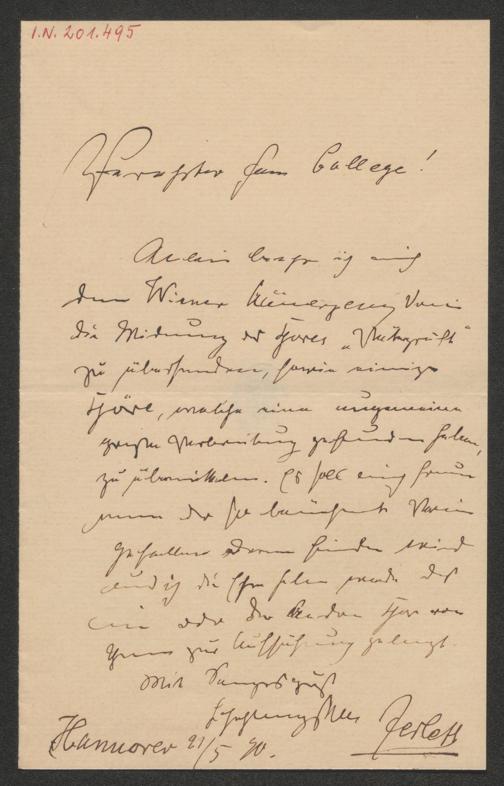 I.N. 201.495
Verehrter Herr College!
Anbei beehre ich mich
dem Wiener Männergesang Verein
die Widmung des Chores „
zu übersenden, sowie einige
Chöre, welche eine ungemein
große Verbreitung gefunden haben,
zu übermitteln. Es soll mich freuen
wenn der so berühmte Verein
Gefallen daran finden wird
und ich die Ehre haben werde daß
ein oder der andere Chor von
Ihnen zur Aufführung gelangt.
Mit Sangesgruß
Hannover 21/5 90.